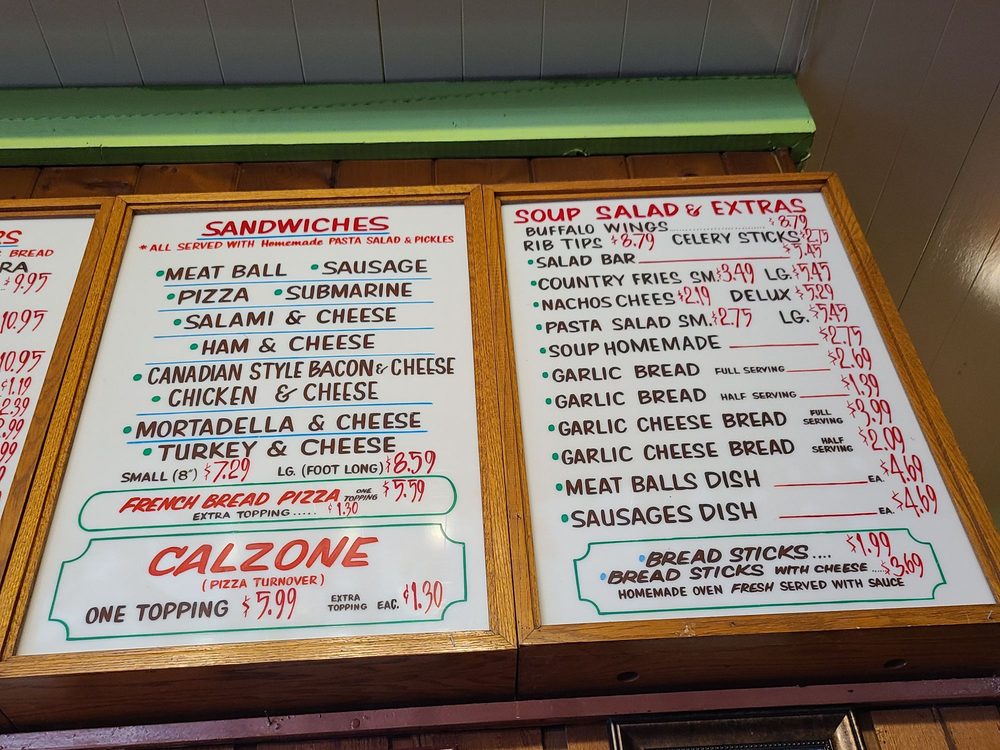 RS
BREAD
RA
$9.95
10.95
10.95
$1.19
2.39
SANDWICHES
*ALL SERVED WITH Homemade PASTA SALAD & PICKLES
•MEAT BALL •SAUSAGE
•PIZZA •SUBMARINE
•SALAMI & CHEESE
•HAM & CHEESE
•CANADIAN STYLE BACON & CHEESE
•CHICKEN & CHEESE
•MORTADELLA & CHEESE
•TURKEY & CHEESE
SMALL (8") $7.29 LG. (FOOT LONG) $8.59
FRENCH BREAD PIZZA ONE TOPPING $5.59
EXTRA TOPPING..... $1.30
CALZONE
(PIZZA TURNOVER)
ONE TOPPING $5.99 EXTRA TOPPING EAC. $1.30
SOUP SALAD & EXTRAS
BUFFALO WINGS $8.79
RIB TIPS $8.79 CELERY STICKS $2.75
•SALAD BAR $5.45
•COUNTRY FRIES SM. $3.49 LG. $5.45
•NACHOS CHEES $2.19 DELUX $5.29
•PASTA SALAD SM. $2.75 LG. $5.45
•SOUP HOMEMADE $2.75
•GARLIC BREAD FULL SERVING $2.69
•GARLIC BREAD HALF SERVING $1.39
•GARLIC CHEESE BREAD FULL SERVING $3.99
•GARLIC CHEESE BREAD HALF SERVING $2.09
•MEAT BALLS DISH EA. $4.69
•SAUSAGES DISH EA. $4.69
•BREAD STICKS.... $1.99
•BREAD STICKS WITH CHEESE .... $3.69
HOMEMADE OVEN FRESH SERVED WITH SAUCE